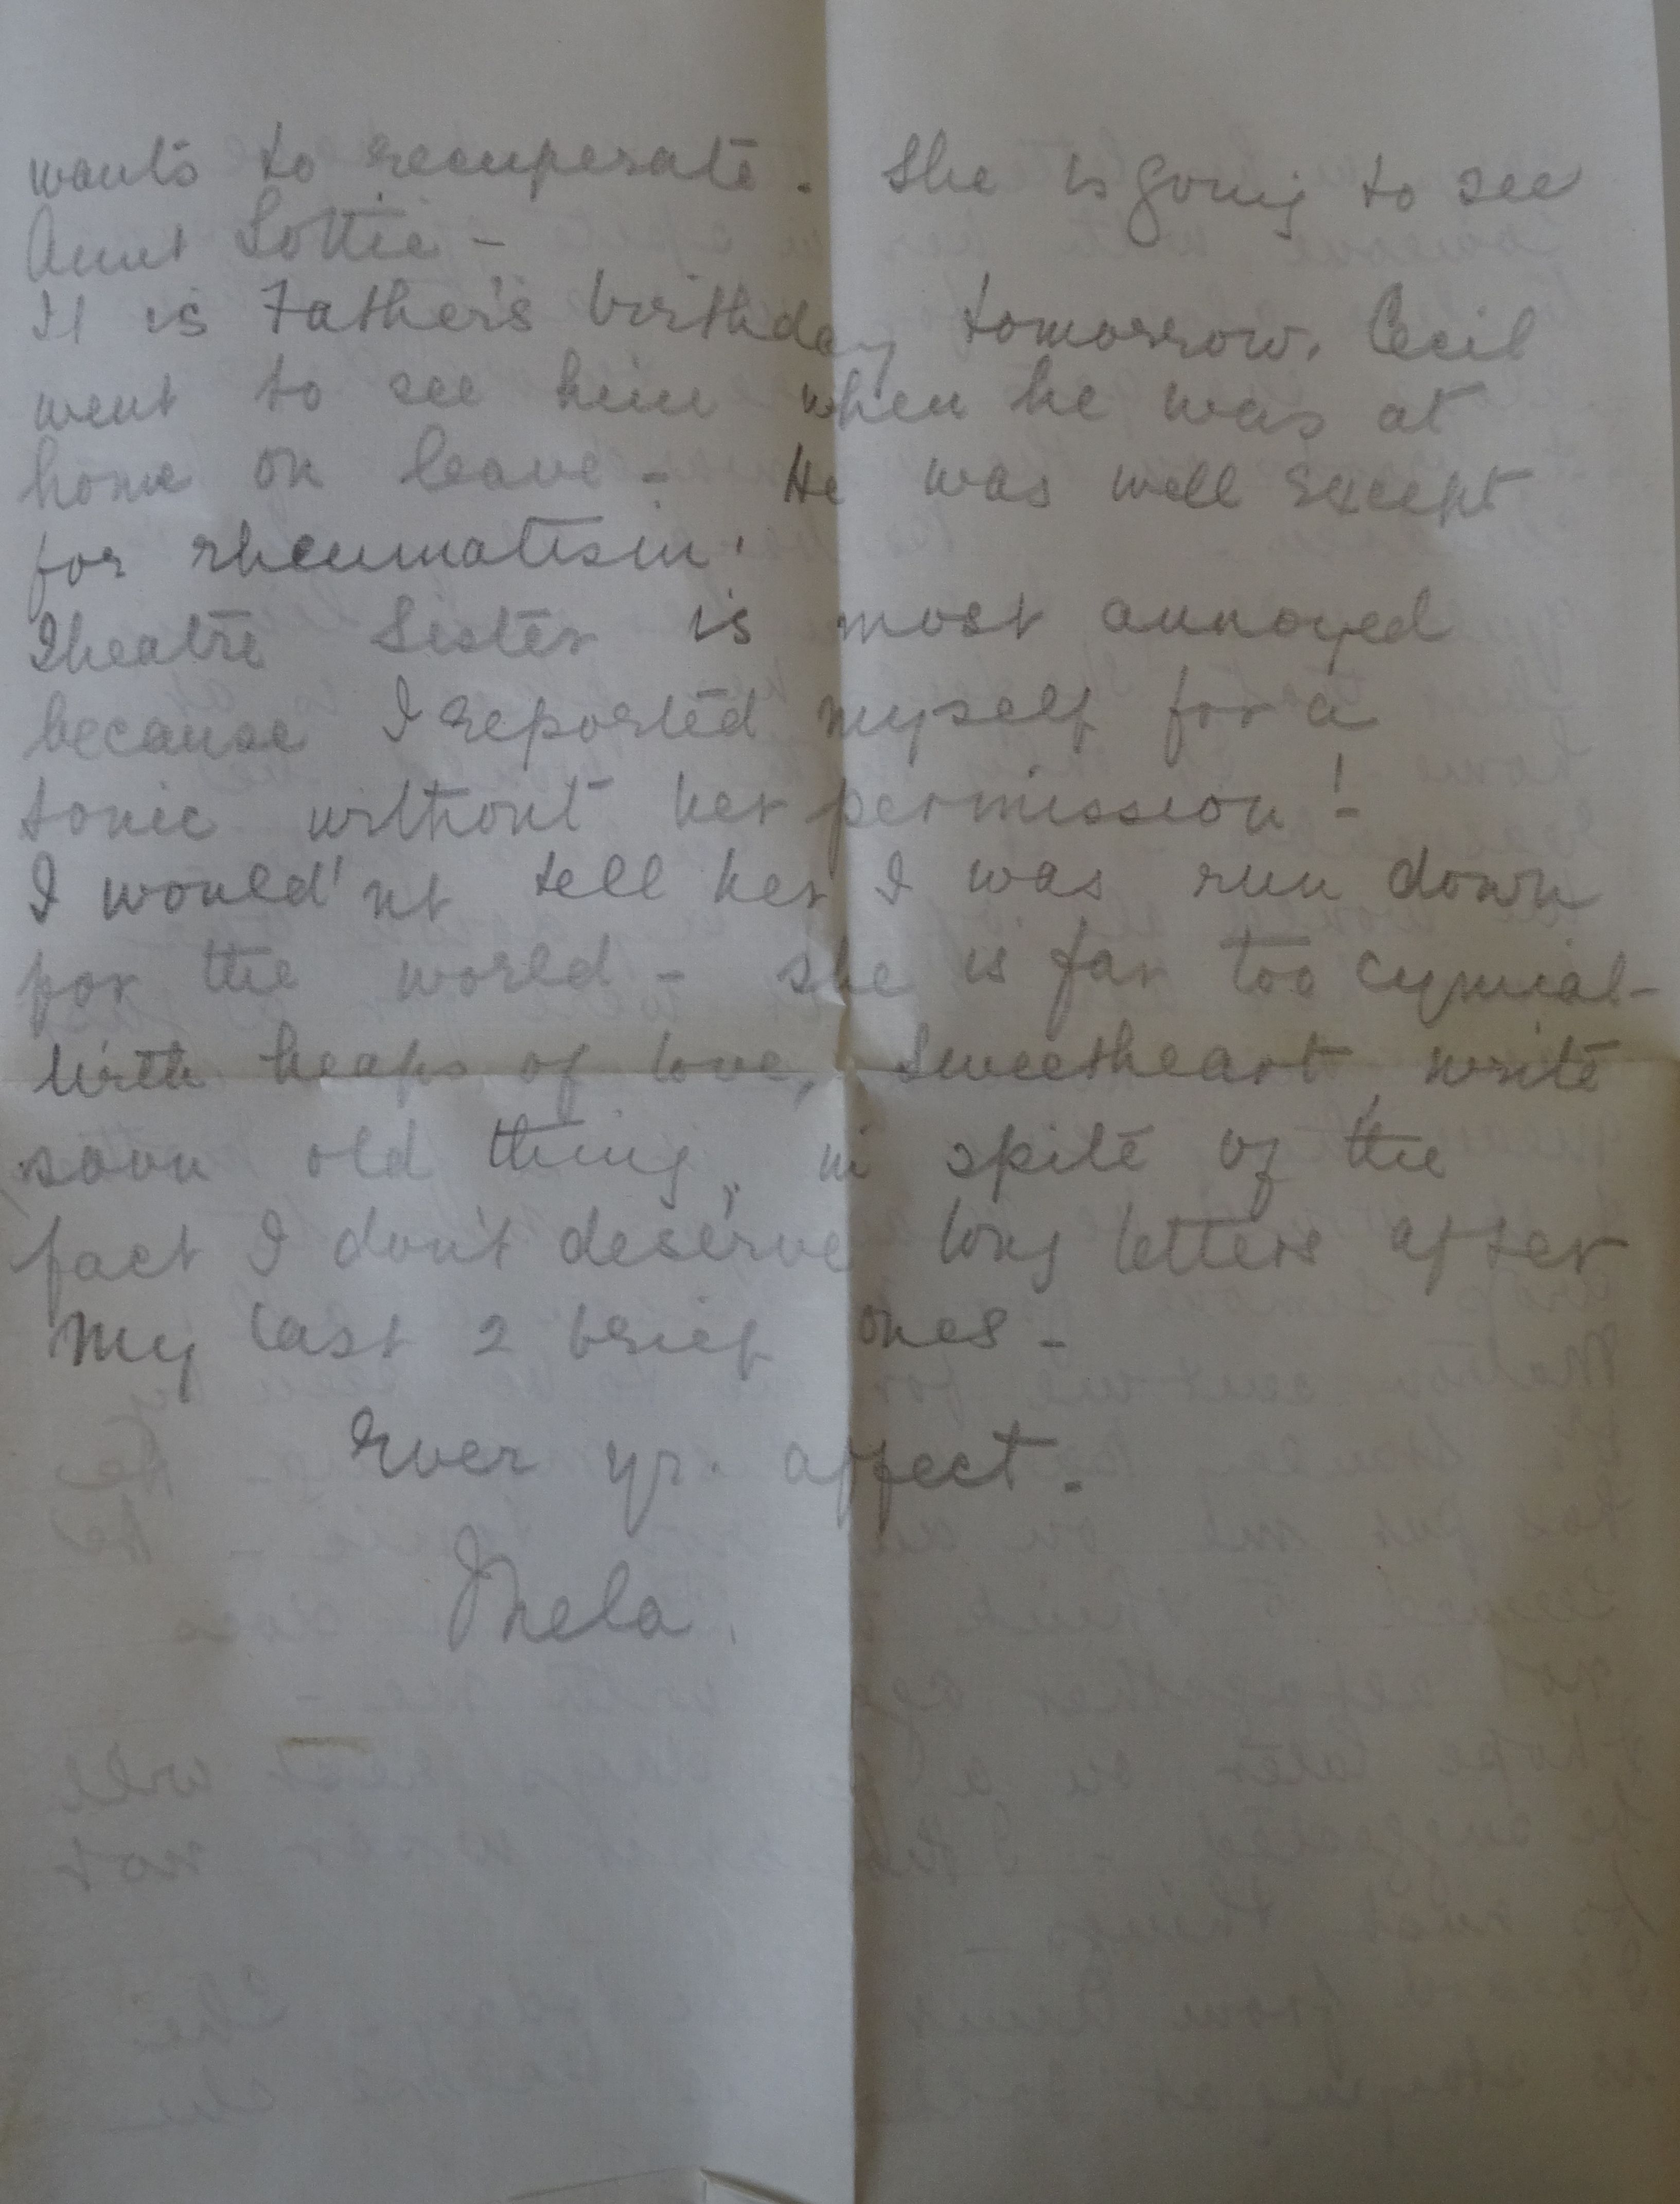 wants to recuperate. She is going to see
Aunt Lottie -
It is Father's birthday tomorrow. Cecil
went to see him when he was at
home on leave - He was well except
for rheumatism.
Theatre Sister is most annoyed
because I reported myself for a
tonic without her permission! -
I would'nt tell her I was run down
for the world - she is far too cynical -
With heaps of love, sweetheart, write
soon old thing, in spite of the
fact I don't deserve long letters after
my last 2 brief ones -
Ever yr. affect.